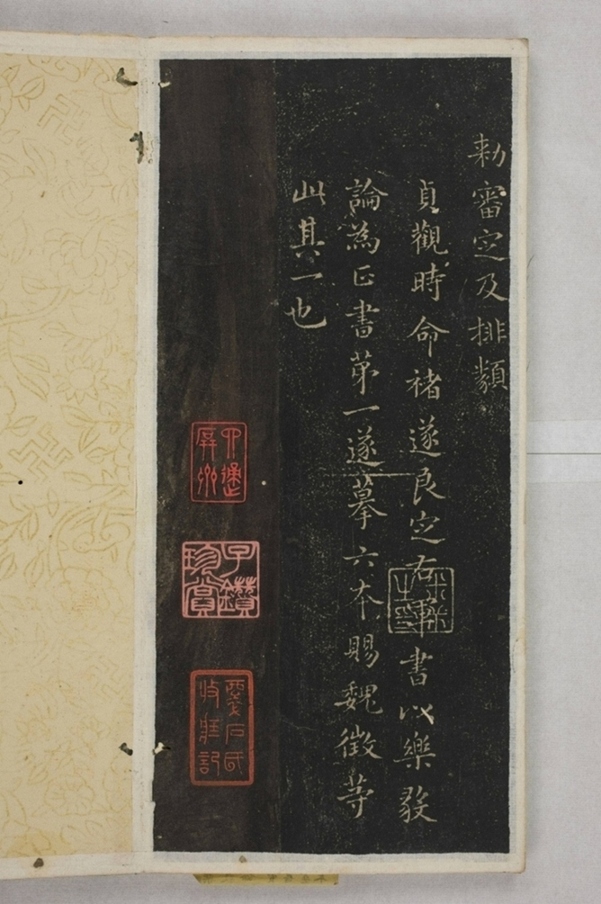 勑審定及排類
貞觀時命褚遂良定右軍書以樂毅
論為正書第一遂摹六本賜魏徵等
此其一也
子鑽
珍賞